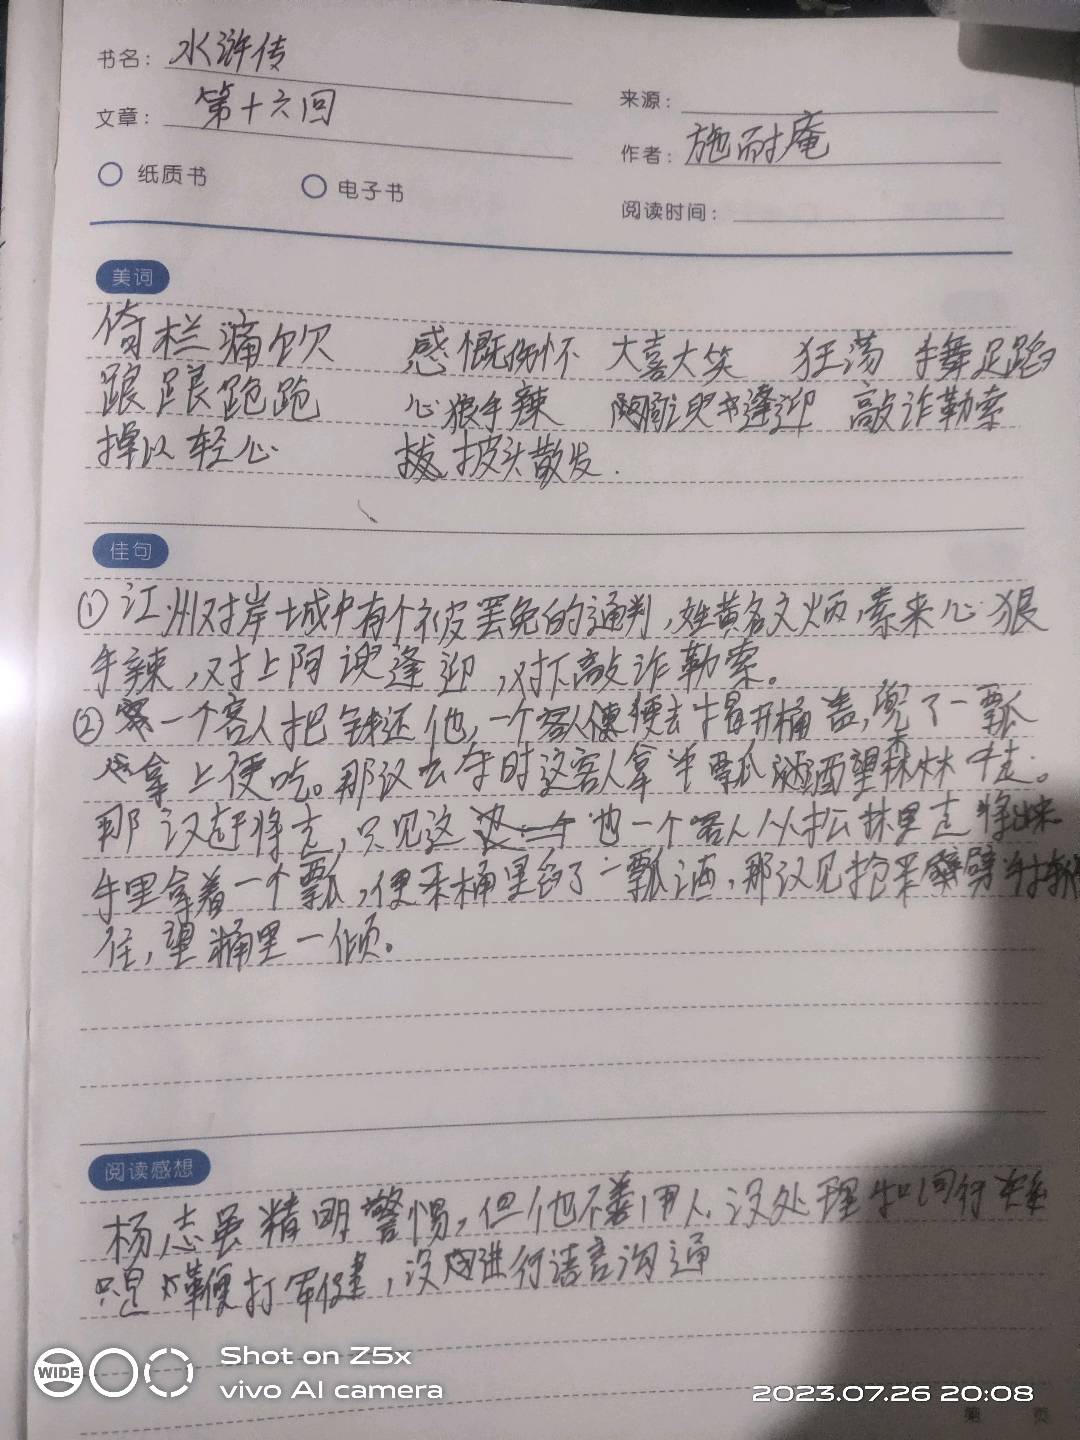 书名: 水浒传
文章: 第十六回
来源:
作者: 施耐庵
纸质书 电子书
阅读时间:
美词
倚栏痛饮 感慨伤怀 大喜大笑 狂荡 手舞足蹈
踉踉跄跄 心狠手辣 阿谀逢迎 敲诈勒索
掉以轻心 披头散发.
佳句
①江州对岸城中有个被罢免的通判,姓黄名文炳,素来心狠
手辣,对上阿谀逢迎,对下敲诈勒索。
②一个客人把钱还他,一个客人便去揭开桶盖,兜了一瓢
拿上便吃。那汉去夺时这客人拿半瓢酒望林中走。
那汉赶将去,只见这边一个客人从松林里走将出来
手里拿着一个瓢,便来桶里舀了一瓢酒,那汉见抢来劈手
住,望桶里一倾。
阅读感想
杨志虽精明警惕,但他不善用人,没处理和同行关系
只是鞭打军健,没进行语言沟通
WIDE
Shot on Z5x
vivo AI camera
2023.07.26 20:08
第 页